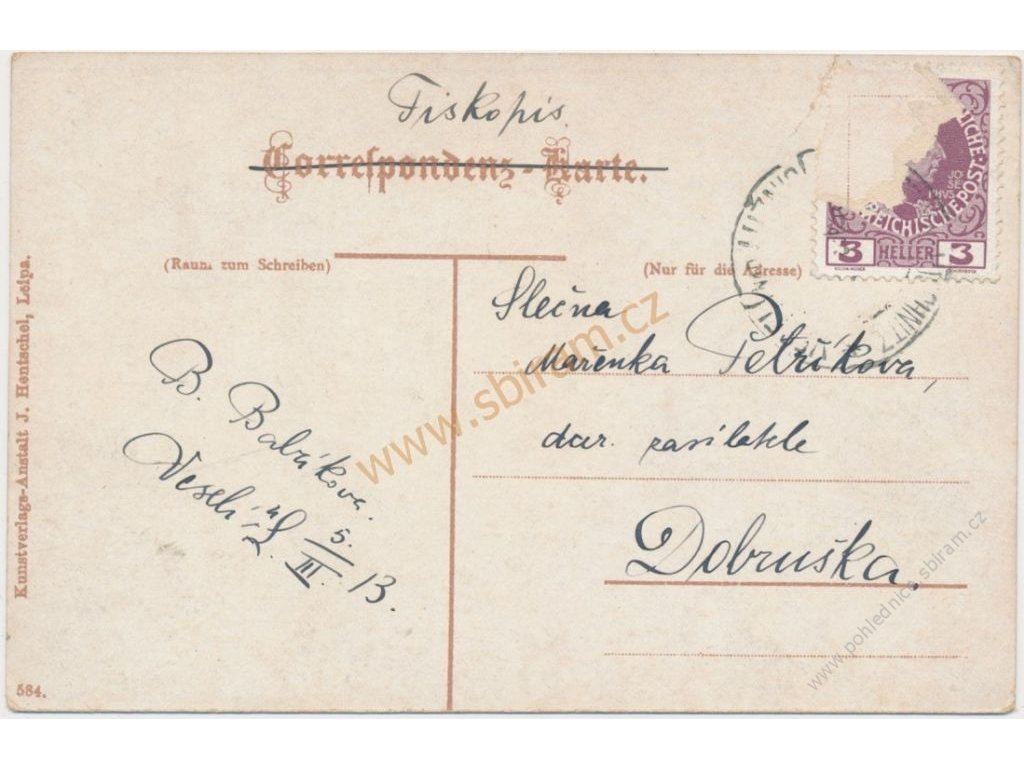 Tiskopis.
Correspondenz-Karte.
(Raum zum Schreiben)
(Nur für die Adresse)
REICHISCHE POST
3 HELLER 3
Slečna
Mařenka Petříkova,
zasílatele
Dobruška.
B. Balzíkova.
5.
III. 13.
Kunstverlags-Anstalt J. Hentschel, Leipa.
584.
www.sbiram.cz
www.pohlednice.sbiram.cz